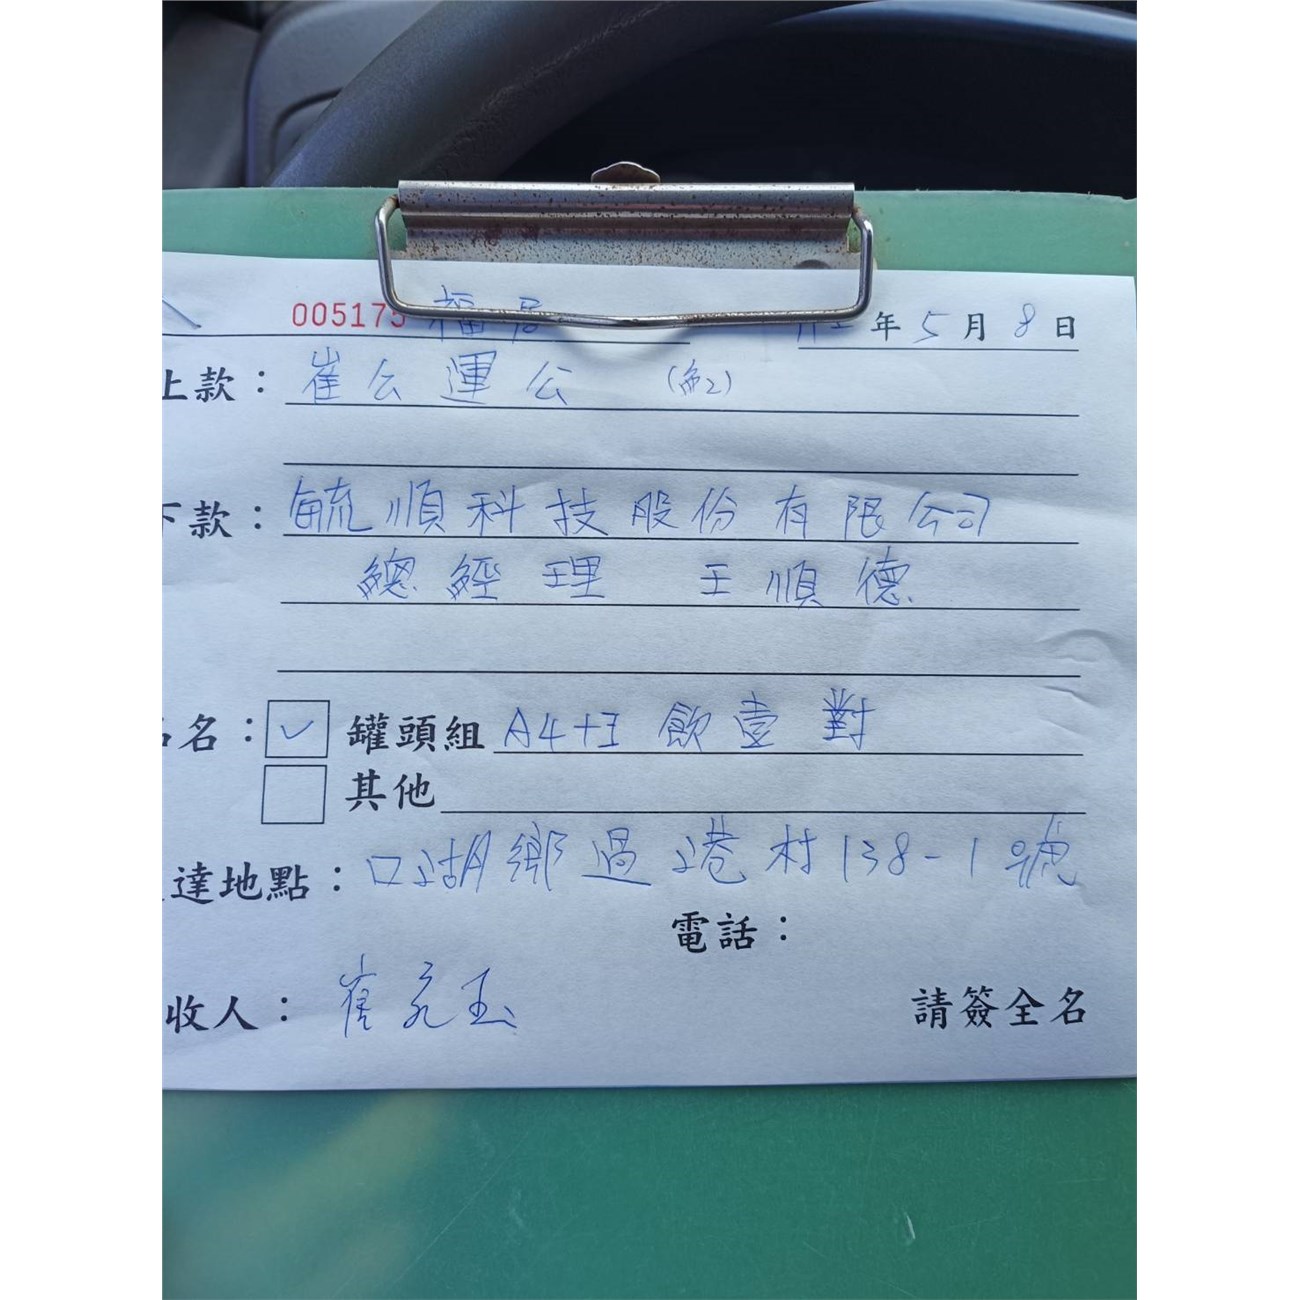 005175 福居 年5月8日
上款：崔公運公 (紅)
下款：毓順科技股份有限公司
總經理 王順德
名：✓ 罐頭組 A4+王 飲壹對
其他
達地點：口湖鄉過港村138-1號
電話：
收人：崔 玉 請簽全名